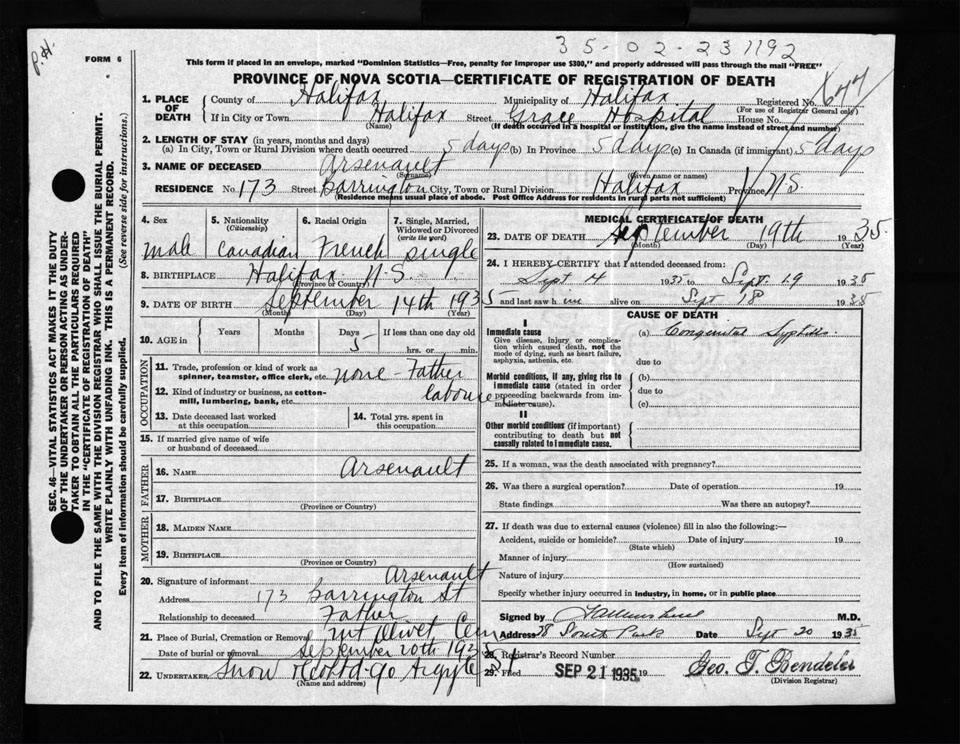 P.H.
35-02-231192
FORM 6
This form if placed in an envelope, marked "Dominion Statistics—Free, penalty for improper use $300," and properly addressed will pass through the mail "FREE"
PROVINCE OF NOVA SCOTIA—CERTIFICATE OF REGISTRATION OF DEATH
SEC. 46—VITAL STATISTICS ACT MAKES IT THE DUTY
OF THE UNDERTAKER OR PERSON ACTING AS UNDER-
TAKER TO OBTAIN ALL THE PARTICULARS REQUIRED
IN THE "CERTIFICATE OF REGISTRATION OF DEATH"
AND TO FILE THE SAME WITH THE DIVISION REGISTRAR WHO SHALL ISSUE THE BURIAL PERMIT.
WRITE PLAINLY WITH UNFADING INK. THIS IS A PERMANENT RECORD.
Every item of information should be carefully supplied. (See reverse side for instructions.)
1. PLACE OF DEATH County of Halifax Municipality of Halifax Registered No.
(For use of Registrar General only)
If in City or Town Halifax Street Grace Hospital House No.
(Name) (If death occurred in a hospital or institution, give the name instead of street and number)
2. LENGTH OF STAY (in years, months and days)
(a) In City, Town or Rural Division where death occurred 5 days (b) In Province 5 days (c) In Canada (if immigrant) 5 days
3. NAME OF DECEASED Arsenault
(Surname) (Given name or names)
RESIDENCE No. 173 Street Barrington City, Town or Rural Division Halifax Province N.S.
(Residence means usual place of abode. Post Office Address for residents in rural parts not sufficient)
4. Sex 5. Nationality (Citizenship) 6. Racial Origin 7. Single, Married, Widowed or Divorced (write the word)
male Canadian French single
8. BIRTHPLACE Halifax N.S.
(Province or Country)
9. DATE OF BIRTH September 14th 1935
(Month) (Day) (Year)
10. AGE in Years Months Days If less than one day old
5 hrs. or min.
OCCUPATION
11. Trade, profession or kind of work as spinner, teamster, office clerk, etc. none - Father
12. Kind of industry or business, as cotton-mill, lumbering, bank, etc. labourer
13. Date deceased last worked at this occupation
14. Total yrs. spent in this occupation
15. If married give name of wife or husband of deceased
FATHER
16. NAME Arsenault
17. BIRTHPLACE
(Province or Country)
MOTHER
18. MAIDEN NAME
19. BIRTHPLACE
(Province or Country)
20. Signature of informant Arsenault
Address 173 Barrington St
Relationship to deceased Father
21. Place of Burial, Cremation or Removal Mt Olivet Cem
Date of burial or removal September 20th 1935
22. UNDERTAKER Snow & Co Ltd 90 Argyle St
(Name and address)
MEDICAL CERTIFICATE OF DEATH
23. DATE OF DEATH September 19th 1935
(Month) (Day) (Year)
24. I HEREBY CERTIFY that I attended deceased from:
Sept 14 1935 to Sept. 19 1935
and last saw him alive on Sept 18 1935
CAUSE OF DEATH
I
Immediate cause
Give disease, injury or complication which caused death, not the mode of dying, such as heart failure, asphyxia, asthenia, etc.
(a) Congenital Syphilis
due to
Morbid conditions, if any, giving rise to immediate cause (stated in order proceeding backwards from immediate cause).
(b)
due to
(c)
II
Other morbid conditions (if important) contributing to death but not causally related to immediate cause.
25. If a woman, was the death associated with pregnancy?
26. Was there a surgical operation? Date of operation 19
State findings Was there an autopsy?
27. If death was due to external causes (violence) fill in also the following:—
Accident, suicide or homicide? Date of injury 19
(State which)
Manner of injury
(How sustained)
Nature of injury
Specify whether injury occurred in industry, in home, or in public place
Signed by M.D.
Address 78 South Park Date Sept 20 1935
28. Registrar's Record Number
29. Filed SEP 21 1935 19 Geo. T. Bendeler
(Division Registrar)